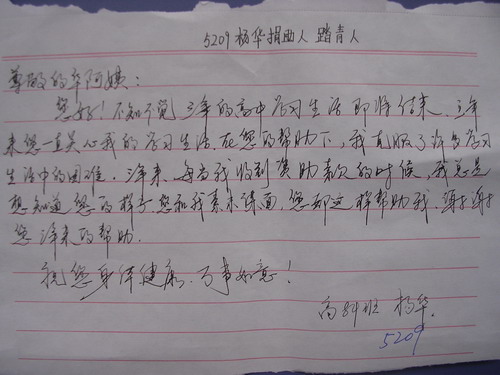 5209 杨华捐助人 踏青人
尊敬的华阿姨:
您好!不知不觉三年的高中学习生活即将结束.三年
来您一直关心我的学习生活.在您的帮助下,我克服了许多学习
生活中的困难.三年来.每当我收到资助款的时候,我总是
想知道您的样子.您和我素未谋面.您却这样帮助我.谢谢
您三年来的帮助.
祝您身体健康.万事如意!
高84班 杨华.
5209